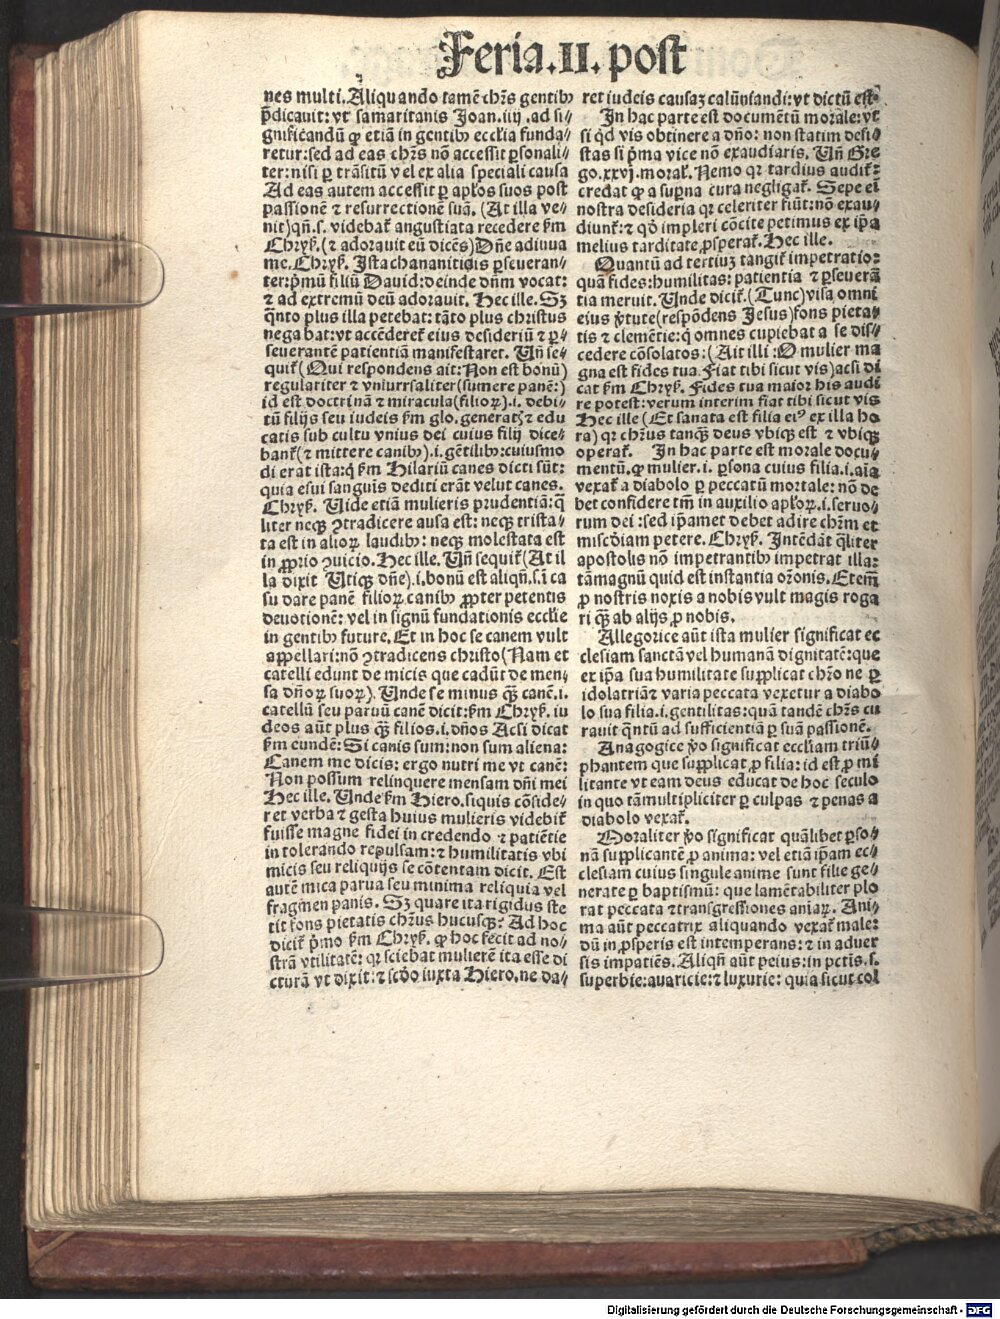 Feria.II.post
nes multi.Aliquando tamē chr̄s gentibꝰ
p̄dicauit:vt samaritanis Joan.iiij.ad si⸗
gnificandū ꝙ etiā in gentibꝰ eccl̄ia funda⸗
retur:sed ad eas chr̄s nō accessit ꝑsonali⸗
ter:nisi ꝑ trāsitū vel ex alia speciali causa
Ad eas autem accessit ꝑ apl̄os suos post
passionē ⁊ resurrectionē suā.(At illa ve⸗
nit)qn̄.s.videbat̄ angustiata recedere ẜm
Chryſ.(⁊ adorauit eū dicēs)Dn̄e adiuua
me.Chryſ.Ista chananitidis ꝑseueran⸗
ter:p̄mū filiū Dauid:deinde dn̄m vocat:
⁊ ad extremū deū adorauit.Hec ille.Sꝫ
q̄nto plus illa petebat:tāto plus christus
negabat:vt accēderet̄ eius desideriū ⁊ ꝑ⸗
seuerantē patientiā manifestaret.Vn̄ se⸗
quit̄(Qui respondens ait:Non est bonū)
regulariter ⁊ vniuersaliter(sumere panē:)
id est doctrinā ⁊ miracula(filioꝝ).i.debi⸗
tū filijs seu iudeis ẜm glo.generatꝭ ⁊ edu
catis sub cultu vnius dei cuius filij dice⸗
bant̄(⁊ mittere canibꝰ).i.gētilibꝰ:cuiusmo
di erat ista:q̄ ẜm Hilariū canes dicti sūt:
quia esui sanguis dediti erāt velut canes.
Chryſ.Vide etiā mulieris prudentiā:q̄
liter neqꝫ ↄtradicere ausa est:neqꝫ trista⸗
ta est in alioꝝ laudibꝰ:neqꝫ molestata est
in ꝓprio ↄuicio.Hec ille.Vn̄ sequit̄(At il
la dixit Vtiqꝫ dn̄e).i.bonū est aliqn̄.s.i ca
su dare panē filioꝝ canibꝰ ꝓpter petentis
deuotionē:vel in signū fundationis eccl̄ie
in gentibꝰ future.Et in hoc se canem vult
appellari:nō ↄtradicens christo(Nam et
catelli edunt de micis que cadūt de men⸗
sa dn̄oꝝ suoꝝ).Vnde se minus qꝫ̄ canē.i.
catellū seu paruū canē dicit:ẜm Chryſ.iu
deos aūt plus qꝫ̄ filios.i.dn̄os Acsi dicat
ẜm eundē:Si canis sum:non sum aliena:
Canem me dicis:ergo nutri me vt canē:
Non possum relinquere mensam dn̄i mei
Hec ille.Vnde ẜm Hiero.siquis cōside⸗
ret verba ⁊ gesta huius mulieris videbit̄
fuisse magne fidei in credendo ⁊ patiētie
in tolerando repulsam:⁊ humilitatis vbi
micis seu reliquijs se cōtentam dicit.Est
autē mica parua seu minima reliquia vel
fragmen panis.Sꝫ quare ita rigidus ste
tit fons pietatis chr̄us hucusqꝫ?Ad hoc
dicit̄ p̄mo ẜm Chryſ.ꝙ hoc fecit ad no⸗
strā vtilitatē:qꝛ sciebat mulierē ita esse di
cturā vt dixit:⁊ scd̄o iuxta Hiero.ne da⸗
ret iudeis causaꝫ calūniandi:vt dictū est.
In hac parte est documētū morale:vt
si qͥd vis obtinere a dn̄o:non statim desi⸗
stas si p̄ma vice nō exaudiaris.Vn̄ Gre
go.xxvj.moral̄.Nemo qꝛ tardius audit̄:
credat ꝙ a suꝑna cura negligat̄.Sepe eī
nostra desideria qꝛ celeriter fiūt:nō exau⸗
diunt̄:⁊ qd̄ impleri cōcite petimus ex ip̄a
melius tarditate ꝓsperat̄.Hec ille.
Quantū ad tertiuꝫ tangit̄ impetratio:
quā fides:humilitas:patientia ⁊ ꝑseuerā
tia meruit.Unde dicit̄.(Tunc)visa omni
eius v̄tute(respōdens Jesus)fons pieta⸗
tis ⁊ clemētie:q̄ omnes cupiebat a se dis⸗
cedere cōsolatos:(Ait illi:O mulier ma
gna est fides tua.Fiat tibi sicut vis)acsi di
cat ẜm Chryſ.Fides tua maior his audi
re potest:verum interim fiat tibi sicut vis
Hec ille(Et sanata est filia eiꝰ ex illa ho
ra)qꝛ chr̄us tanqꝫ̄ deus vbiqꝫ est ⁊ vbiqꝫ
operat̄. In hac parte est morale docu⸗
mentū.ꝙ mulier.i.ꝑsona cuius filia.i.aīa
vexat̄ a diabolo ꝑ peccatū mortale:nō de
bet confidere tm̄ in auxilio apl̄oꝝ.i.seruo⸗
rum dei:sed ip̄amet debet adire chr̄m et
misc̄diam petere.Chryſ.Intēdāt qͣliter
apostolis nō impetrantibꝰ impetrat illa:
tāmagnū quid est instantia or̄onis.Etem̄
ꝓ nostris noxis a nobis vult magis roga
ri qꝫ̄ ab alijs ꝓ nobis.
Allegorice aūt ista mulier significat ec
clesiam sanctā vel humanā dignitatē:que
ex ip̄a sua humilitate supplicat chr̄o ne ꝑ
idolatriā ⁊ varia peccata vexetur a diabo
lo sua filia.i.gentilitas:quā tandē chr̄s cu
rauit q̄ntū ad sufficientiā ꝑ suā passionē.
Anagogice v̄o significat eccl̄iam triū⸗
phantem que supplicat ꝓ filia:id est ꝓ mi
litante vt eam deus educat de hoc seculo
in quo tā multipliciter ꝑ culpas ⁊ penas a
diabolo vexat̄.
Moraliter v̄o significat quālibet ꝑso⸗
nā supplicantē ꝓ anima:vel etiā ip̄am ec⸗
clesiam cuius singule anime sunt filie ge⸗
nerate ꝑ baptismū:que lamētabiliter plo
rat peccata ⁊ transgressiones aniaꝝ.Ani⸗
ma aūt peccatrix aliquando vexat̄ male:
dū in ꝓsperis est intemperans:⁊ in aduer
sis impatiēs.Aliqn̄ aūt peius:in pctīs.s.
superbie:auaricie:⁊ luxurie:quia sicut col
Digitalisierung gefördert durch die Deutsche Forschungsgemeinschaft - DFG